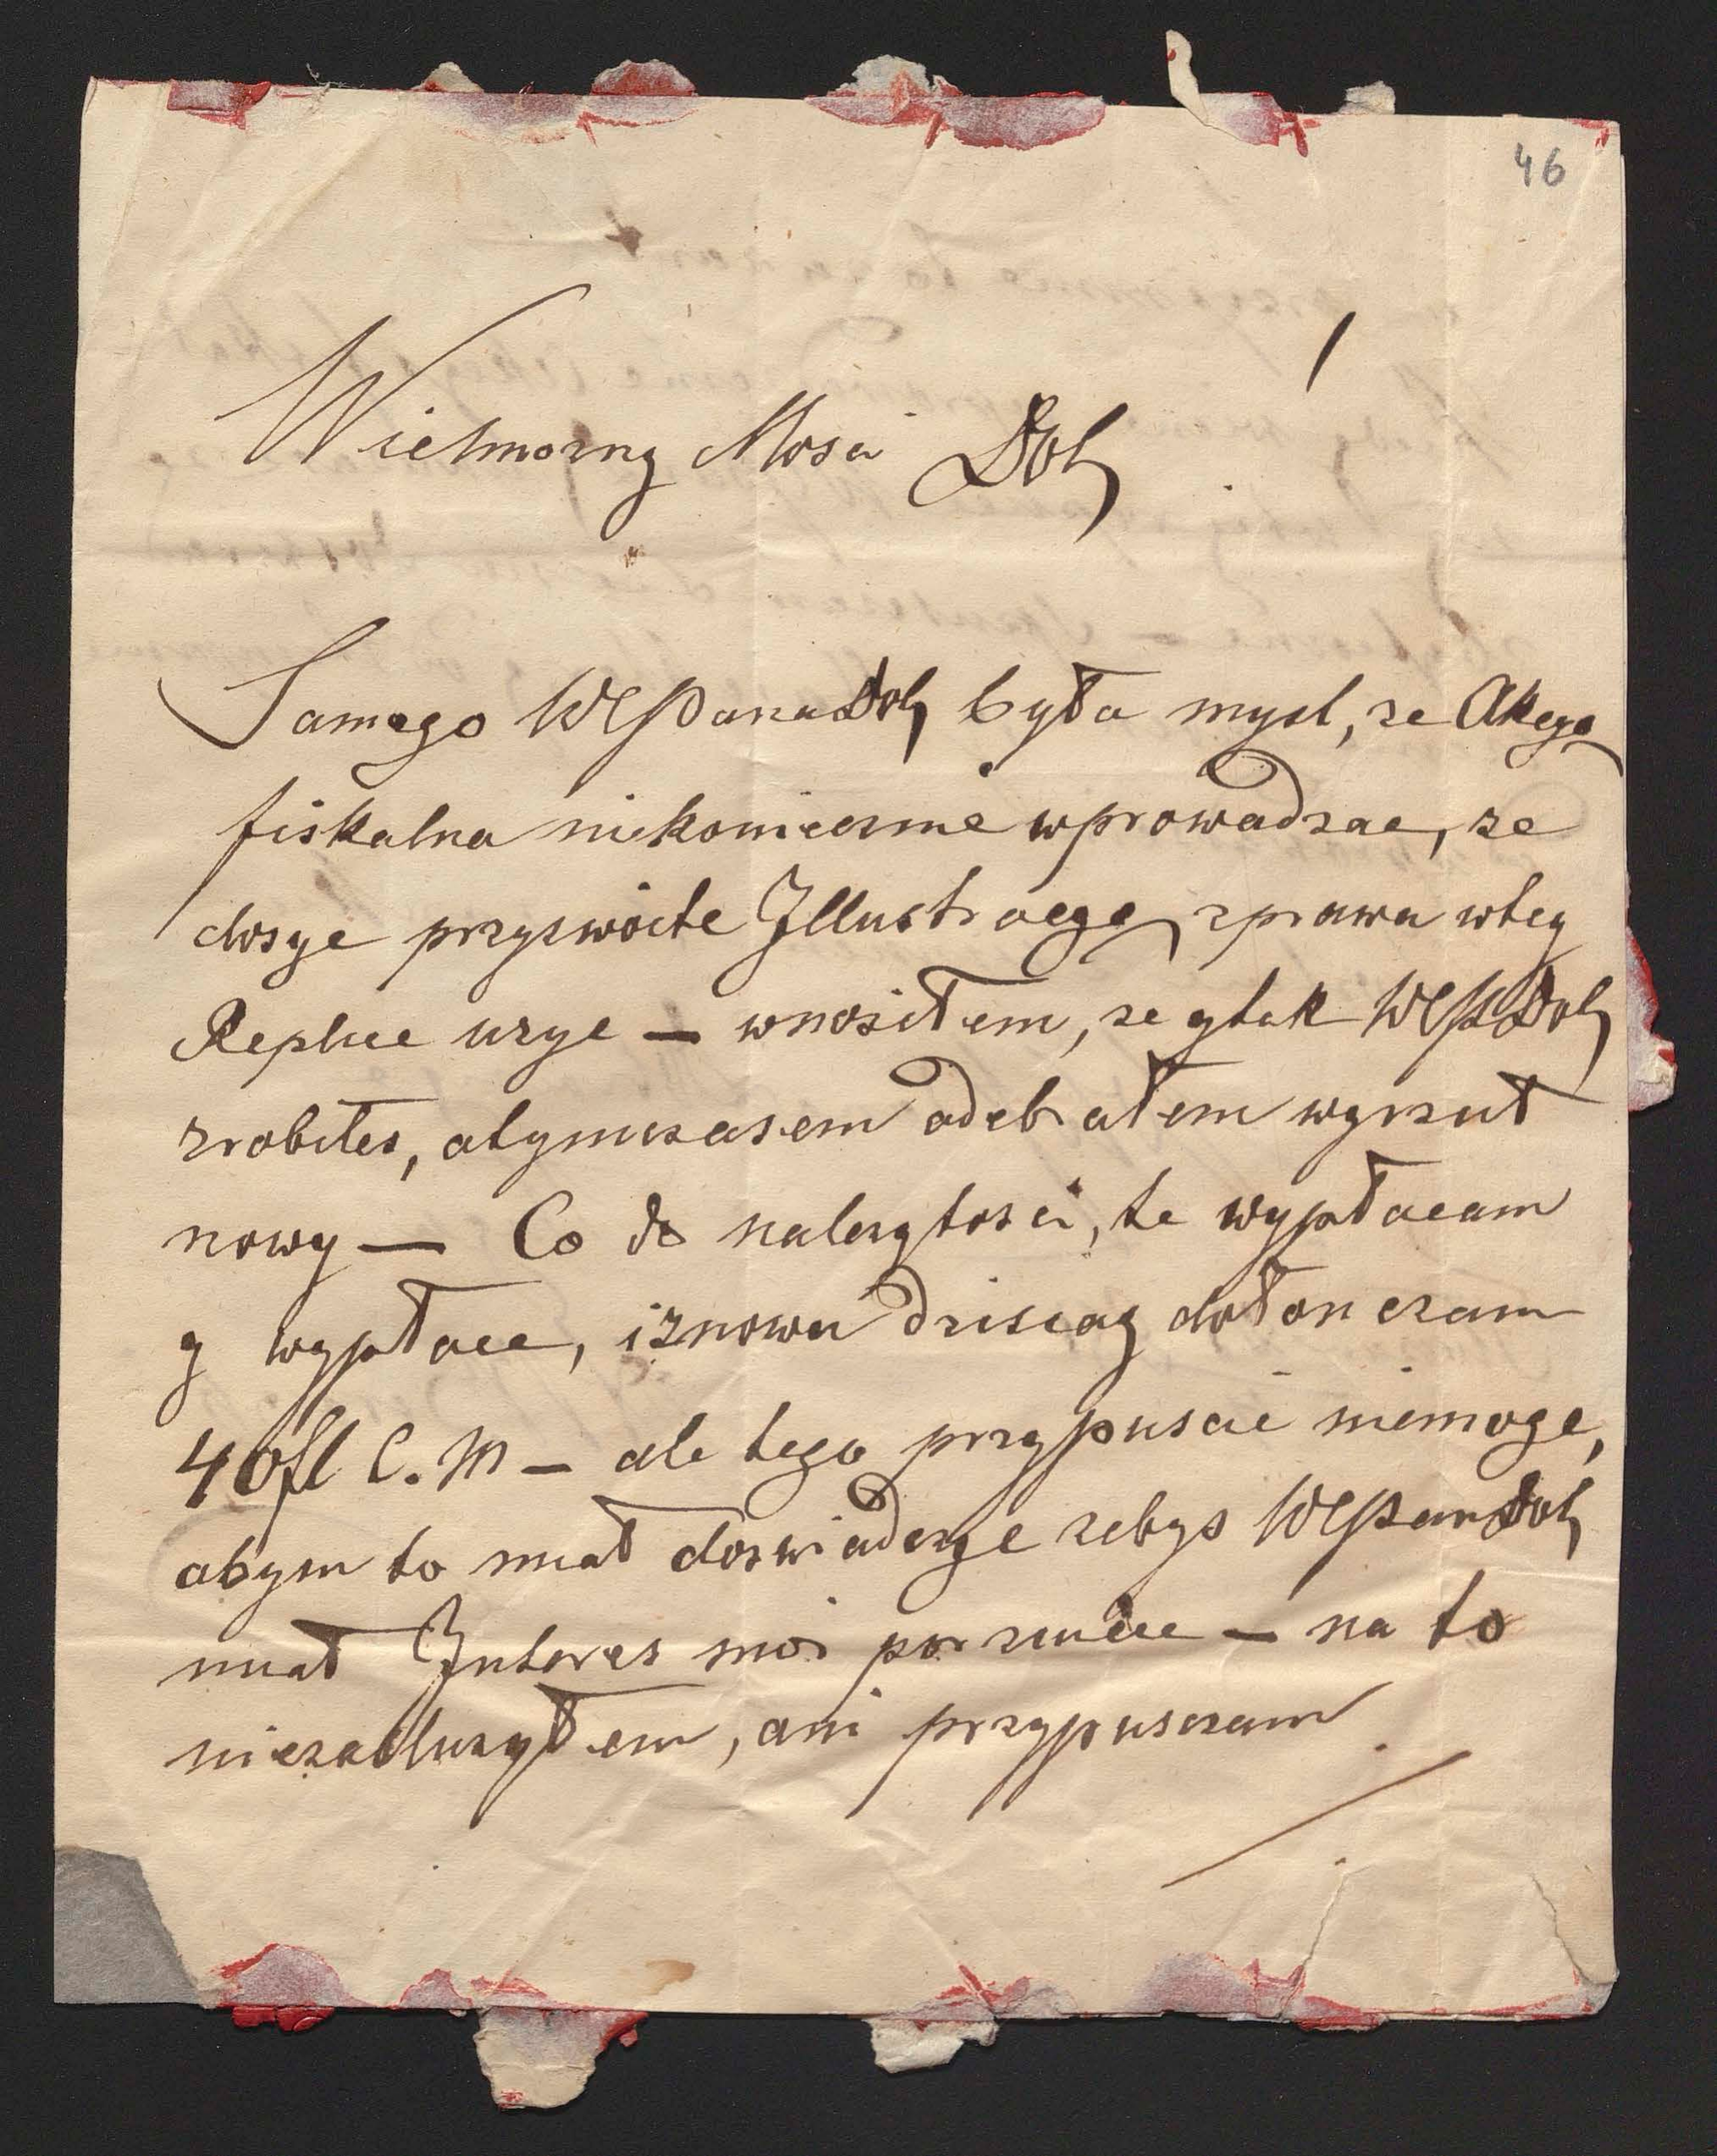 46
Wielmozny Mosci Dob
Samego WPana Dob była mysl, ze Akcyą
fiskalna niekoniecznie wprowadzac, ze
dosyc przyzwoite Jllustracye zprawa wtey
Replice uzyc — wnosiłem, ze ytak WP Dob
zrobiłes, atymczasem odebrałem wyrzut
nowy — Co do nalezytosci, te wypłacam
y wypłace, iznowu dzisiay dołonczam
40 fl C. M — ale tego przypuscic niemoge,
abym to miał doswiadczyc zebys WPan Dob
miał Interes moi porzucic — na to
niezasluzyłem, ani przypuszczam